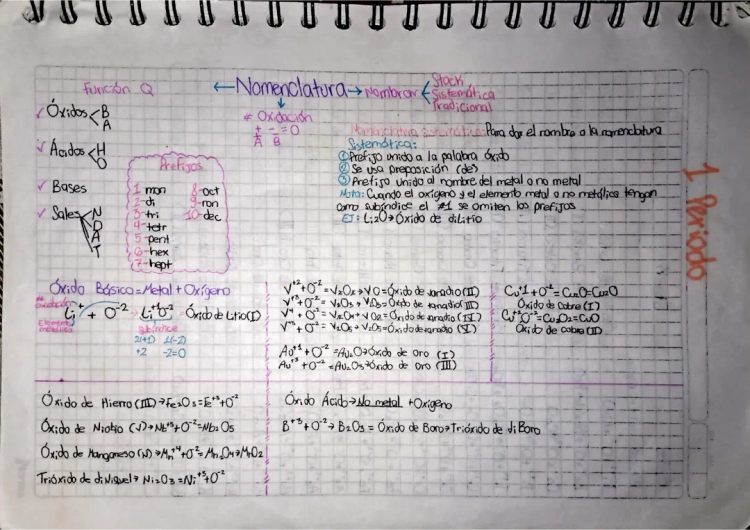 Función Q ← Nomenclatura → Nombrar < Stock
Sistemática
Tradicional
# Oxidación
+ - = 0
A B
✓ Óxidos < B
A
✓ Ácidos < H
O
✓ Bases
✓ Sales N
D
A
T
Prefijos
1 mon
2-di
3-tri
4-tetr
5-pent
6-hex
7-hept
8-oct
9-non
10-dec
Nomenclatura sistemática: Para dar el nombre a la nomenclatura
Sistemática:
① Prefijo unido a la palabra óxido
② Se usa preposición (de)
③ Prefijo unido al nombre del metal o no metal
Nota: Cuando el oxígeno y el elemento metal o no metálico tengan
como subíndice el #1 se omiten los prefijos
EJ: Li2O→Óxido de diLitio
1 Periodo
Óxido Básico=Metal+Oxígeno
Li+ + O-2 → Li+1O-2 Óxido de Litio(I)
elemento
metálico
subíndice
2(+1) 1(-2)
+2 -2=0
V+2+O-2 =V2O2→VO=Óxido de vanadio(II)
V+3+O-2 =V2O3→V2O3=Óxido de vanadio(III)
V+4+O-2 =V2O4→VO2=Óxido de vanadio(IV)
V+5+O-2 =V2O5→V2O5=Óxido de vanadio(V)
Au+1+O-2 =Au2O→óxido de oro (I)
Au+3+O-2 =Au2O3→óxido de oro (III)
Cu+1+O-2=Cu2O=Cu2O
Óxido de Cobre (I)
Cu+2O-2=Cu2O2=CuO
Óxido de cobre (II)
Óxido de Hierro(III)→Fe2O3=Fe+3+O-2
Óxido de Niobio (V)→Nb+5+O-2=Nb2O5
Óxido de Manganeso(IV)→Mn+4+O-2=Mn2O4=MnO2
Trióxido de diNiquel→Ni2O3=Ni+3+O-2
Óxido Ácido→No metal +Oxígeno
B+3+O-2→B2O3=Óxido de Boro→Trióxido de diBoro